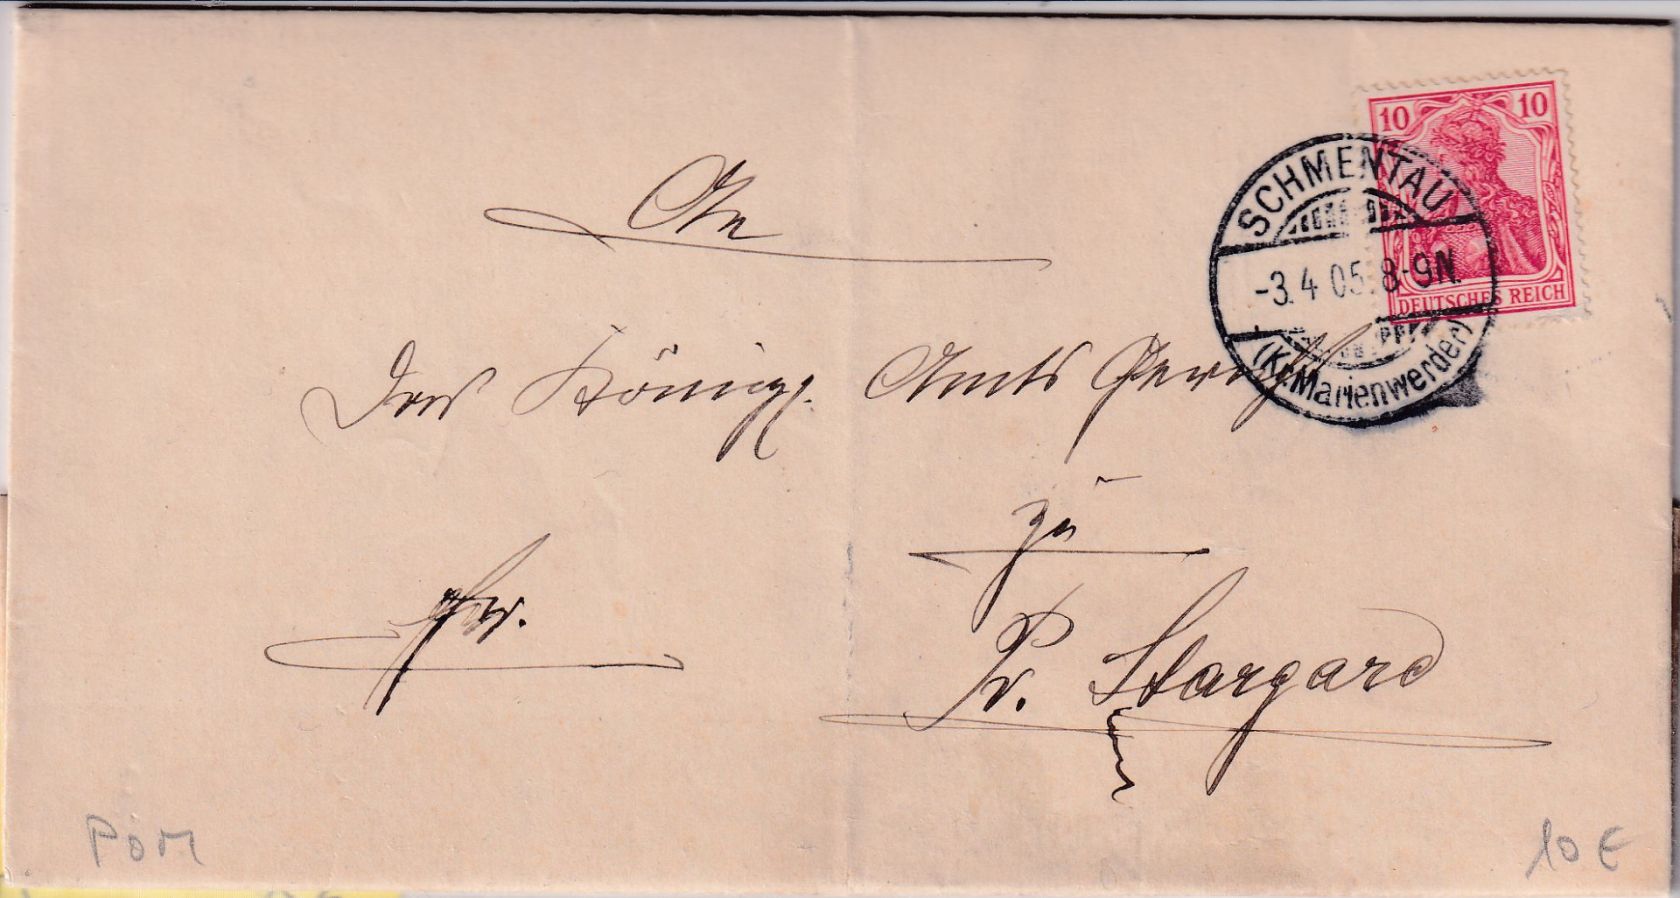 10 10
DEUTSCHES REICH
SCHMENTAU
-3.4 05. 8-9N.
(Kr. Marienwerder)
An
Das Königl. Amts Gericht
zu
Pr. Stargard
POM
10 €